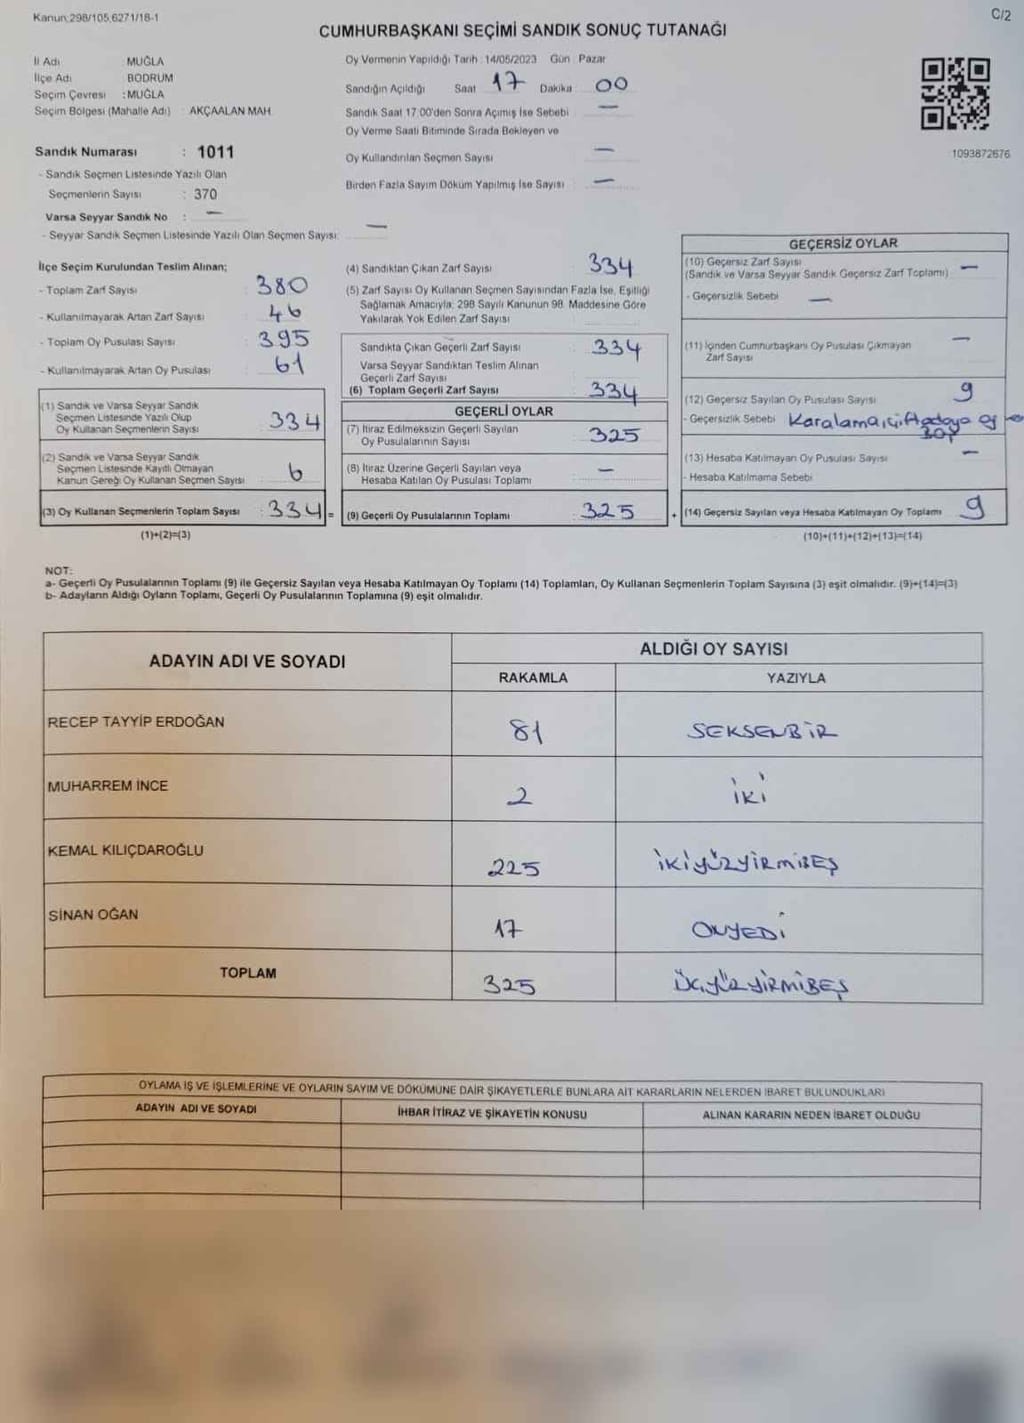 Kanun:298/105,6271/18-1
C/2
CUMHURBAŞKANI SEÇİMİ SANDIK SONUÇ TUTANAĞI
İl Adı : MUĞLA
İlçe Adı : BODRUM
Seçim Çevresi : MUĞLA
Seçim Bölgesi (Mahalle Adı) : AKÇAALAN MAH
Sandık Numarası : 1011
- Sandık Seçmen Listesinde Yazılı Olan
Seçmenlerin Sayısı : 370
Varsa Seyyar Sandık No : —
- Seyyar Sandık Seçmen Listesinde Yazılı Olan Seçmen Sayısı: —
Oy Vermenin Yapıldığı Tarih : 14/05/2023 Gün : Pazar
Sandığın Açıldığı Saat : 17 Dakika : 00
Sandık Saat 17:00'den Sonra Açımış İse Sebebi : —
Oy Verme Saati Bitiminde Sırada Bekleyen ve
Oy Kullandırılan Seçmen Sayısı : —
Birden Fazla Sayım Döküm Yapılmış İse Sayısı : —
1093872676
İlçe Seçim Kurulundan Teslim Alınan;
- Toplam Zarf Sayısı : 380
- Kullanılmayarak Artan Zarf Sayısı : 46
- Toplam Oy Pusulası Sayısı : 395
- Kullanılmayarak Artan Oy Pusulası : 61
(1) Sandık ve Varsa Seyyar Sandık
Seçmen Listesinde Yazılı Olup
Oy Kullanan Seçmenlerin Sayısı : 334
(2) Sandık ve Varsa Seyyar Sandık
Seçmen Listesinde Kayıtlı Olmayan
Kanun Gereği Oy Kullanan Seçmen Sayısı : 6
(3) Oy Kullanan Seçmenlerin Toplam Sayısı : 334 =
(1)+(2)=(3)
(4) Sandıktan Çıkan Zarf Sayısı : 334
(5) Zarf Sayısı Oy Kullanan Seçmen Sayısından Fazla İse, Eşitliği
Sağlamak Amacıyla; 298 Sayılı Kanunun 98. Maddesine Göre
Yakılarak Yok Edilen Zarf Sayısı :
Sandıkta Çıkan Geçerli Zarf Sayısı : 334
Varsa Seyyar Sandıktan Teslim Alınan
Geçerli Zarf Sayısı :
(6) Toplam Geçerli Zarf Sayısı : 334
GEÇERLİ OYLAR
(7) İtiraz Edilmeksizin Geçerli Sayılan
Oy Pusulalarının Sayısı : 325
(8) İtiraz Üzerine Geçerli Sayılan veya
Hesaba Katılan Oy Pusulası Toplamı : —
(9) Geçerli Oy Pusulalarının Toplamı : 325 +
GEÇERSİZ OYLAR
(10) Geçersiz Zarf Sayısı
(Sandık ve Varsa Seyyar Sandık Geçersiz Zarf Toplamı) : —
- Geçersizlik Sebebi : —
(11) İçinden Cumhurbaşkanı Oy Pusulası Çıkmayan
Zarf Sayısı : —
(12) Geçersiz Sayılan Oy Pusulası Sayısı : 9
- Geçersizlik Sebebi : Karalama, çift adaya oy
(13) Hesaba Katılmayan Oy Pusulası Sayısı : —
- Hesaba Katılmama Sebebi :
(14) Geçersiz Sayılan veya Hesaba Katılmayan Oy Toplamı : 9
(10)+(11)+(12)+(13)=(14)
NOT:
a- Geçerli Oy Pusulalarının Toplamı (9) ile Geçersiz Sayılan veya Hesaba Katılmayan Oy Toplamı (14) Toplamları, Oy Kullanan Seçmenlerin Toplam Sayısına (3) eşit olmalıdır. (9)+(14)=(3)
b- Adayların Aldığı Oyların Toplamı, Geçerli Oy Pusulalarının Toplamına (9) eşit olmalıdır.
ADAYIN ADI VE SOYADI
ALDIĞI OY SAYISI
RAKAMLA YAZIYLA
RECEP TAYYİP ERDOĞAN 81 SEKSENBİR
MUHARREM İNCE 2 İKİ
KEMAL KILIÇDAROĞLU 225 İKİYÜZYİRMİBEŞ
SİNAN OĞAN 17 ONYEDİ
TOPLAM 325 ÜÇYÜZYİRMİBEŞ
OYLAMA İŞ VE İŞLEMLERİNE VE OYLARIN SAYIM VE DÖKÜMÜNE DAİR ŞİKAYETLERLE BUNLARA AİT KARARLARIN NELERDEN İBARET BULUNDUKLARI
ADAYIN ADI VE SOYADI İHBAR İTİRAZ VE ŞİKAYETİN KONUSU ALINAN KARARIN NEDEN İBARET OLDUĞU